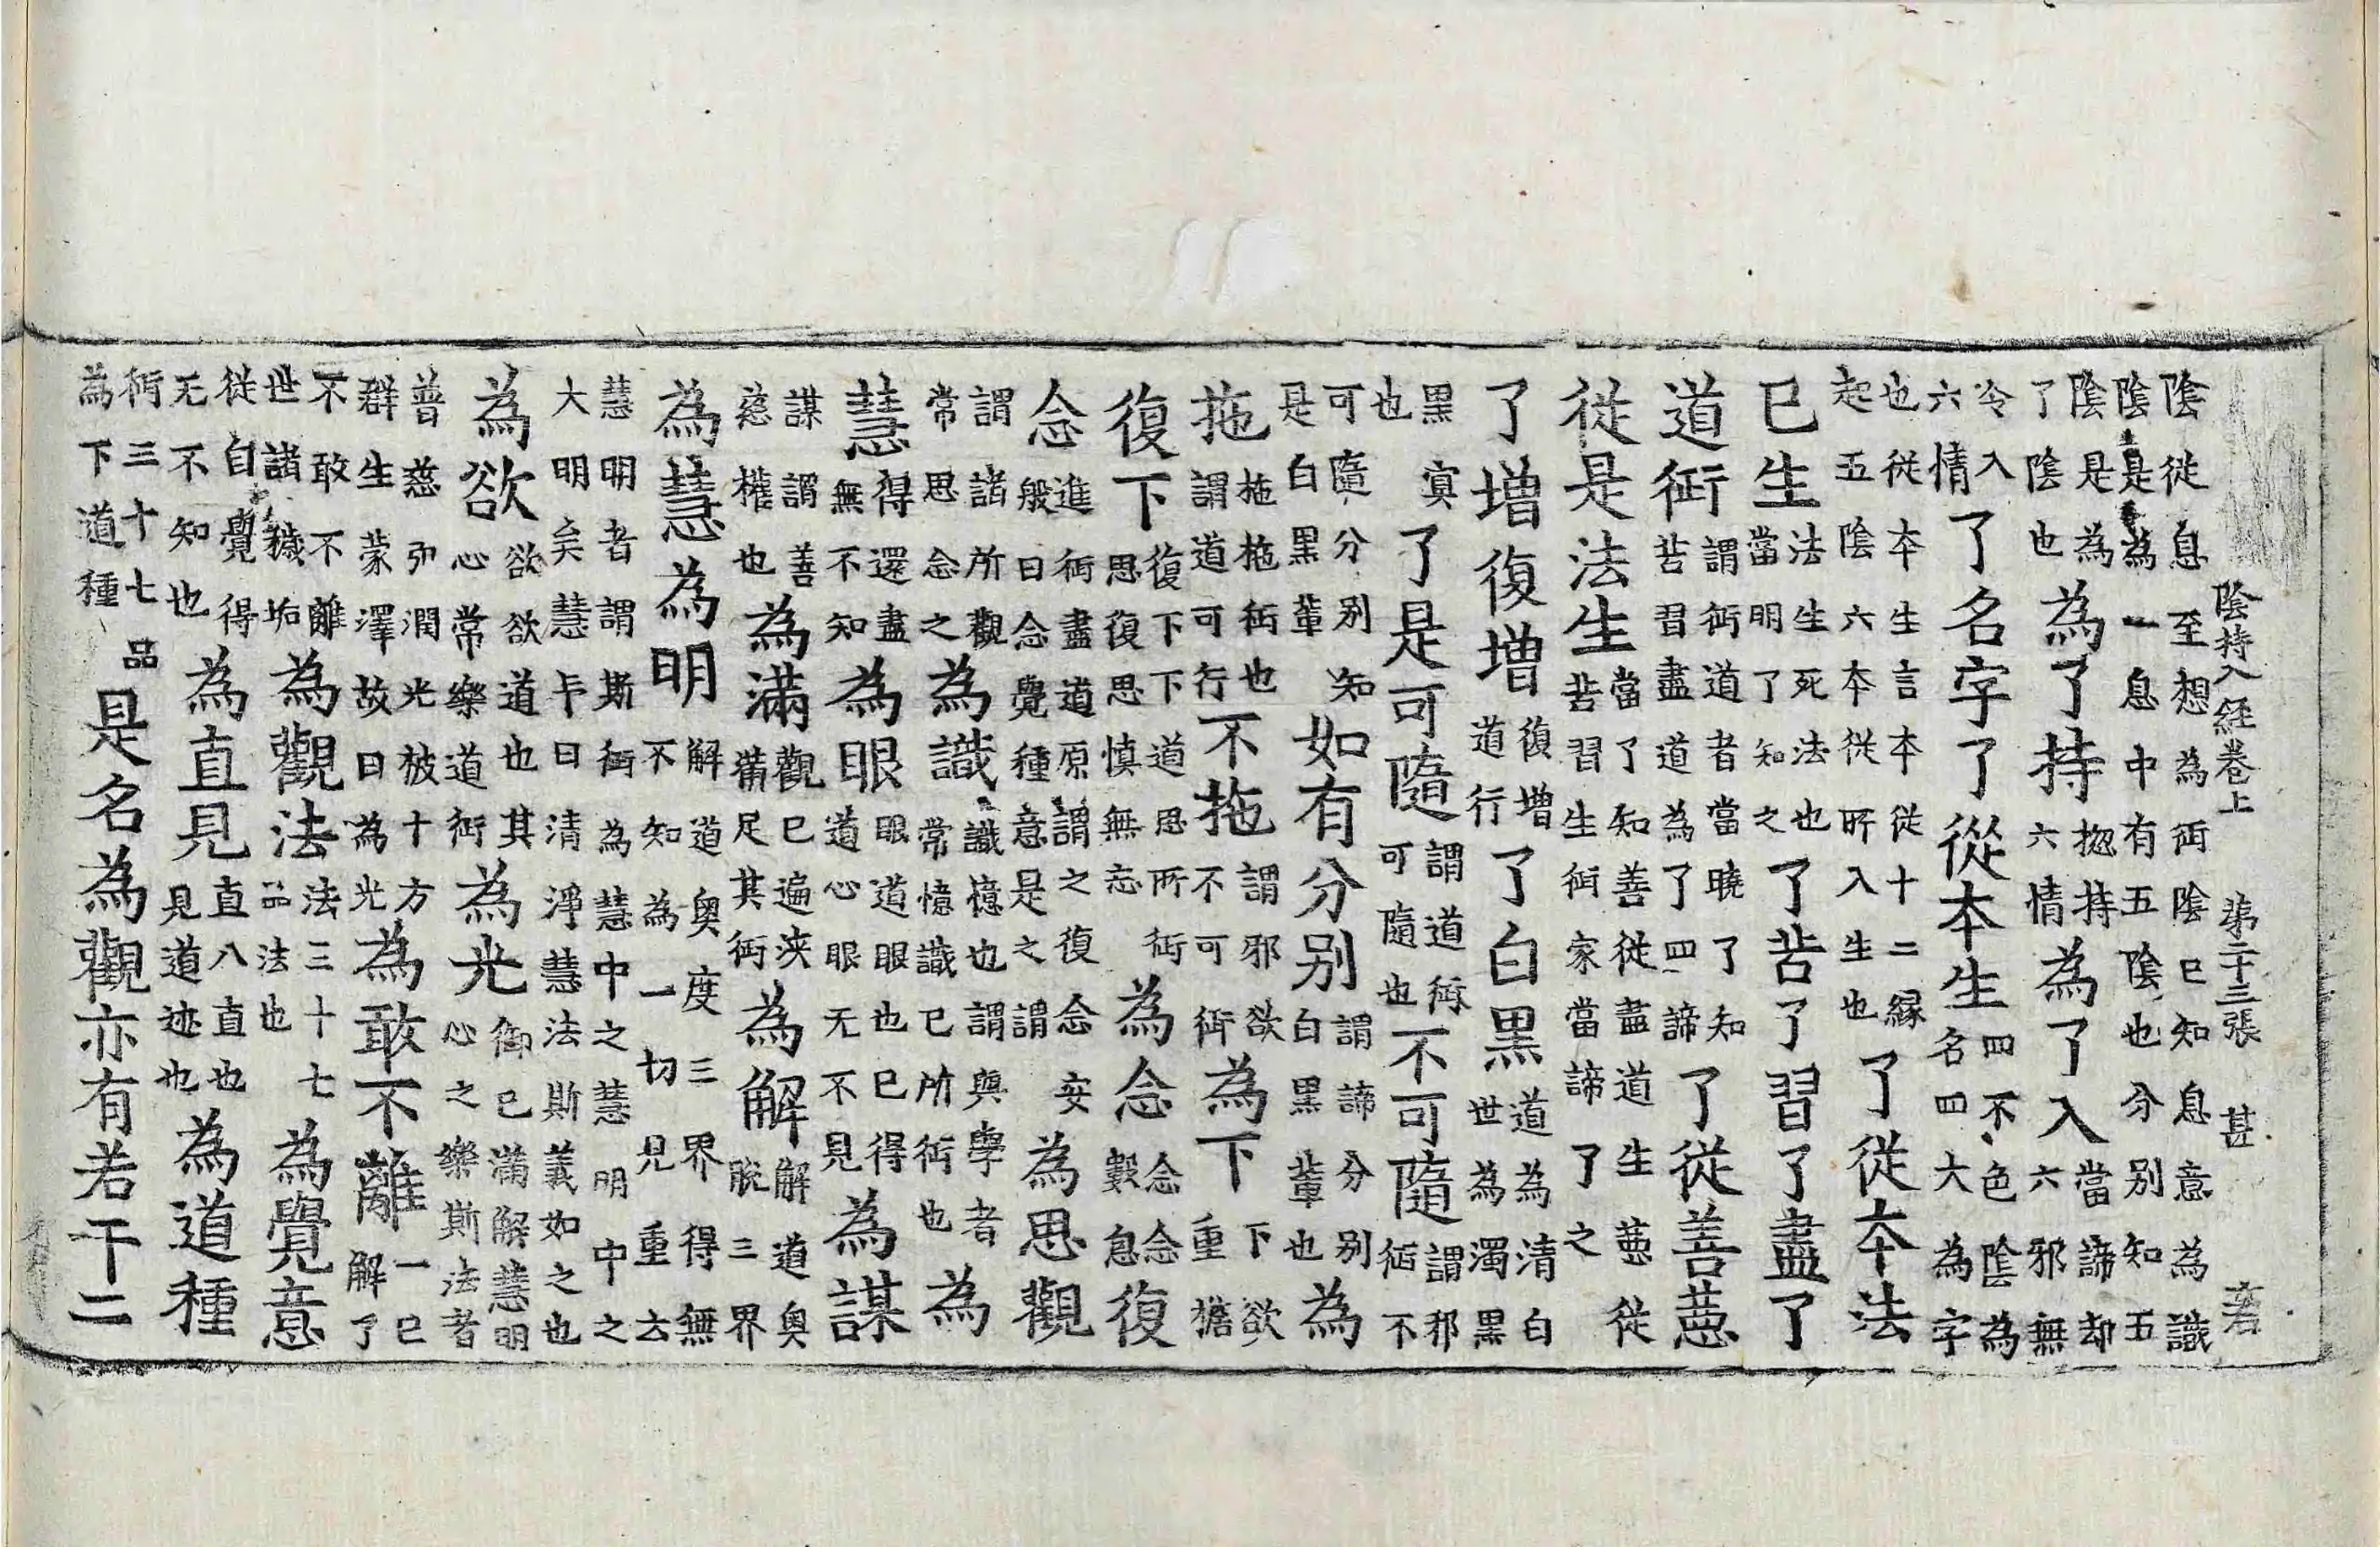 陰持入經卷上 第二十三張 甚
陰從息至想為兩陰已知息意為識陰是為一息中有五陰也分別知五
陰是為了陰也為了持揔持六情為了入當諦却六邪無
冷入六情了名字了從本生四不色陰為名四大為字
也從本生言本從十二緣起五陰六本從所入生也了從本法
已生法生死法也當明了知之了苦了習了盡了
道術謂術道者當曉了知苦習盡道為了四諦了從善惡
從是法生當了知善從盡道生惡從苦習生術家當諦了之
了增復增復增道行了白黑道為清白世為濁黑
黑寘也了是可隨謂道術可隨也不可隨謂邪術不
可隨分别知是白黑輩如有分别謂諦分别白黑輩也為
拖拖拖術也謂道可行不拖謂邪欲不可術為下下欲重擔
復下復下下道思所術思復思慎無忘為念念念數息復
念進術盡道原謂之復念安般曰念覺種意是之謂為思觀
謂諸所觀常思念之為識識憶也謂與學者常憶識已所術也為
慧得還盡無不知為眼眼道眼也已得道心眼无不見為謀
謀謂善慈權也為滿觀已遍浹滿足其術為解解道奧脫三界
為慧為明解道奧度三界得無不知為一切見重去
慧明者謂斯術為慧中之慧明中之大明矣慧卡曰清淨慧法斯義如之也
為欲欲欲道也其心常樂道術為光御已滿解慧明心之樂斯法者
普慈弘潤光被十方群生蒙澤故曰為光為敢不離一已解了
不敢不離世諸穢垢為觀法法三十七品法也為覺意
從自覺得无不知也為直見直八直也見道迹也為道種
術三十七品為下道種是名為觀亦有若干二